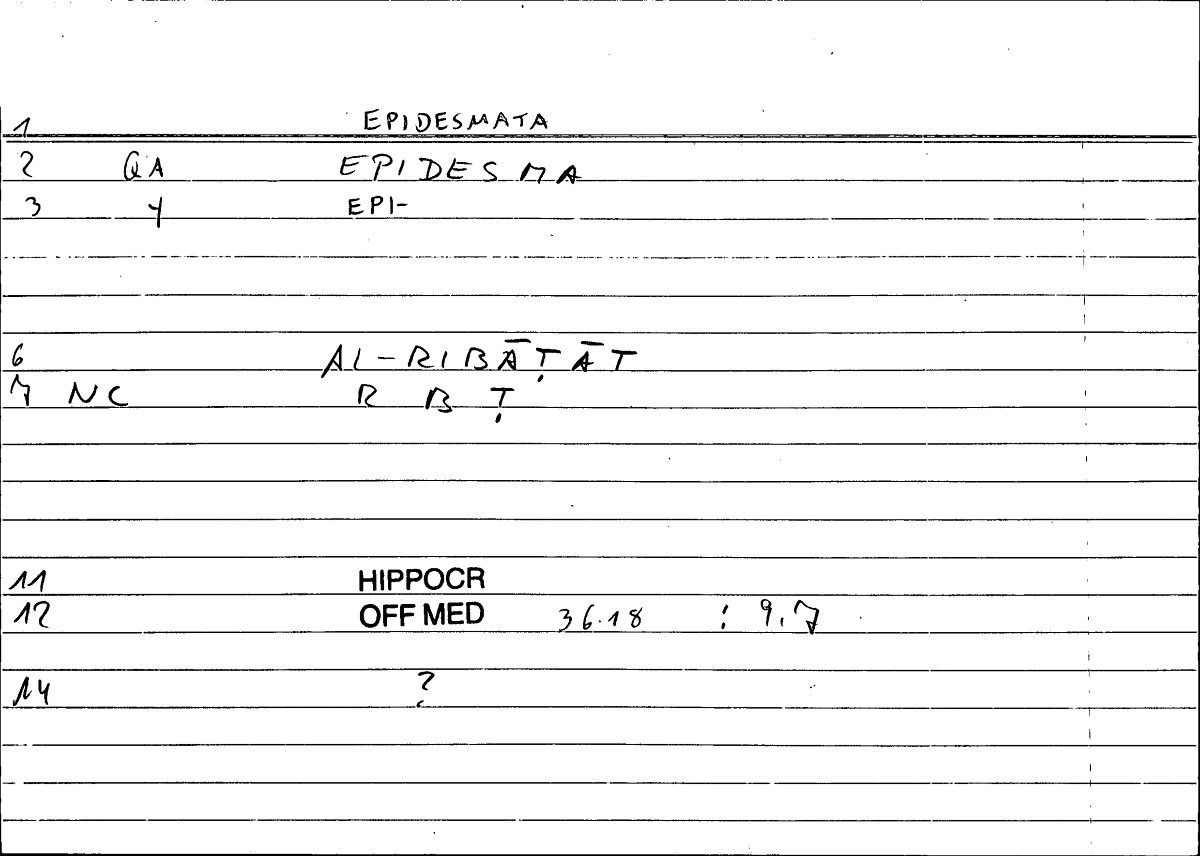 1 EPIDESMATA
2 QA EPIDESMA
3 Y EPI-
6 AL-RIBĀṬĀT
7 NC R B Ṭ
11 HIPPOCR
12 OFF MED 36.18 : 9.7
14 ?